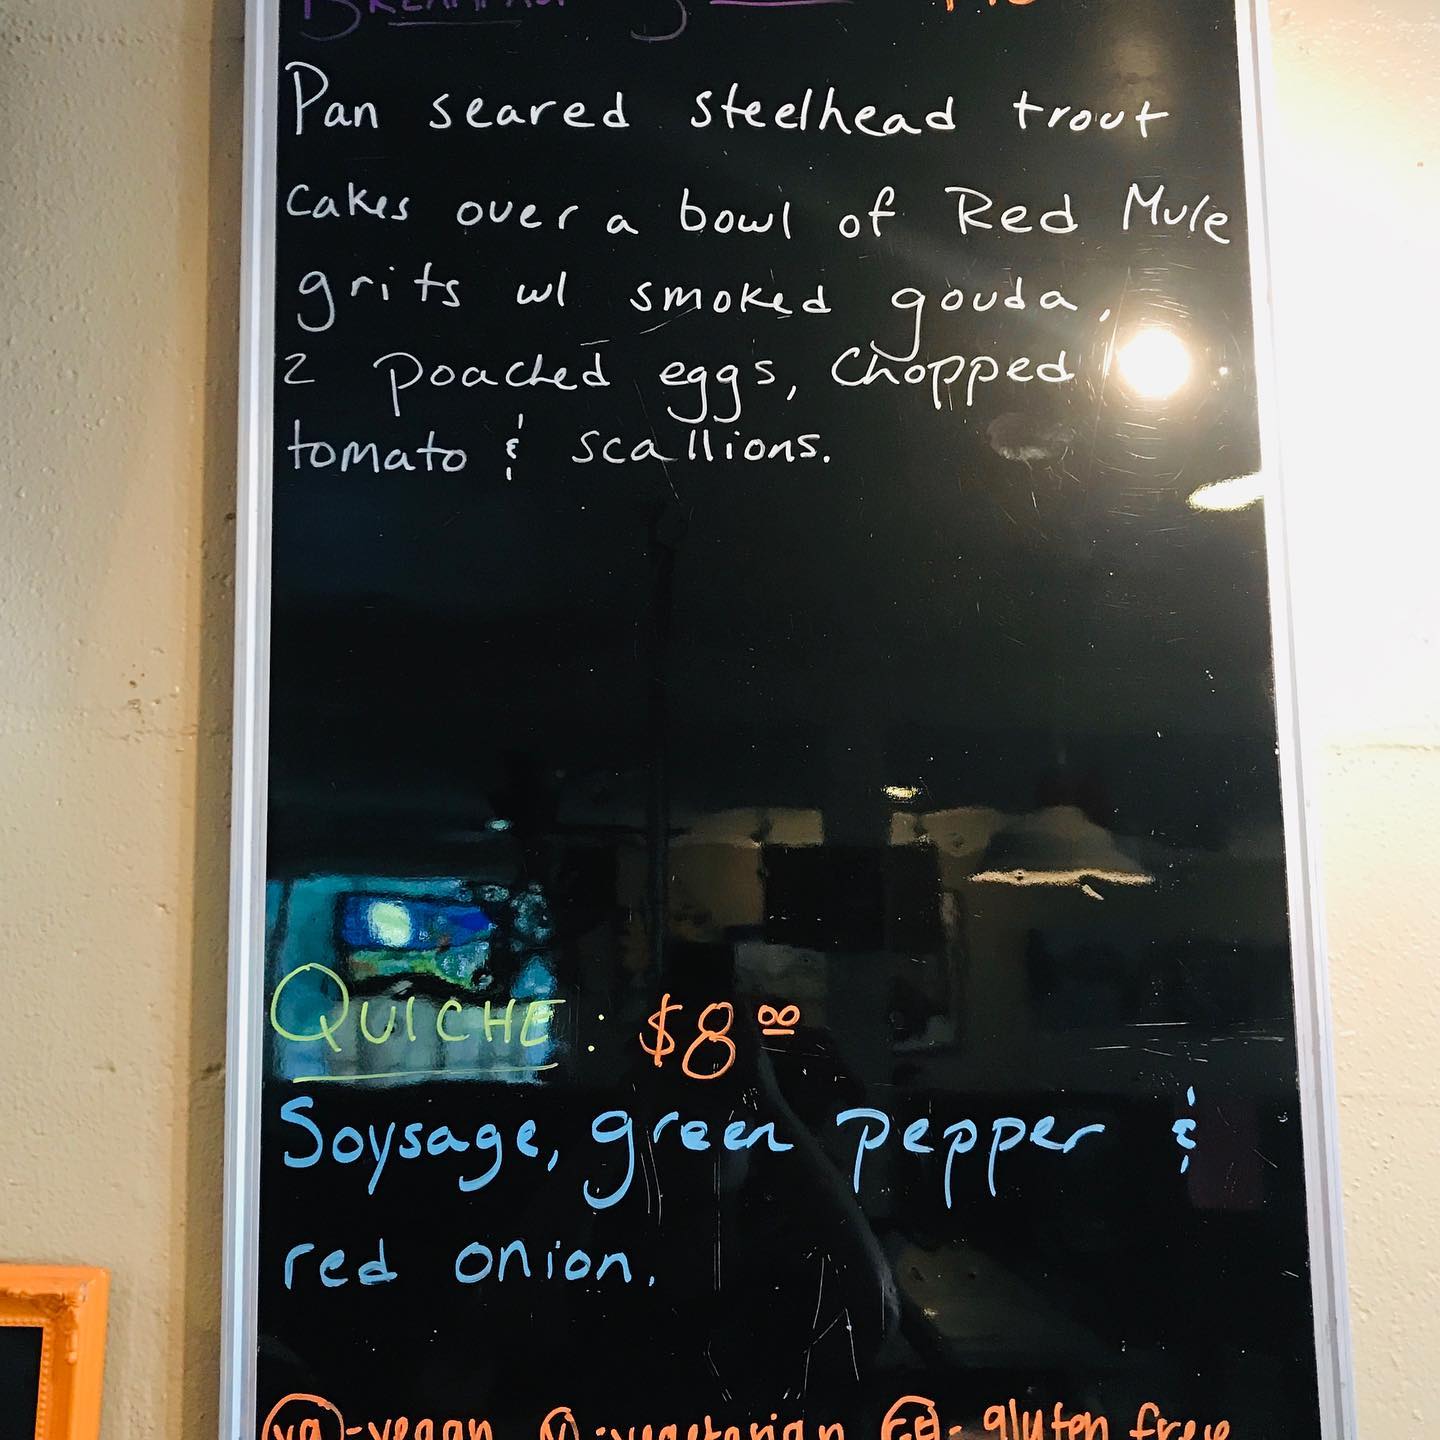 Pan seared steelhead trout
cakes over a bowl of Red Mule
grits w/ smoked gouda,
2 poached eggs, Chopped
tomato & scallions.
QUICHE : $8.00
Soysage, green pepper &
red onion.
(vg)-vegan (V)-vegetarian (GF)- gluten free